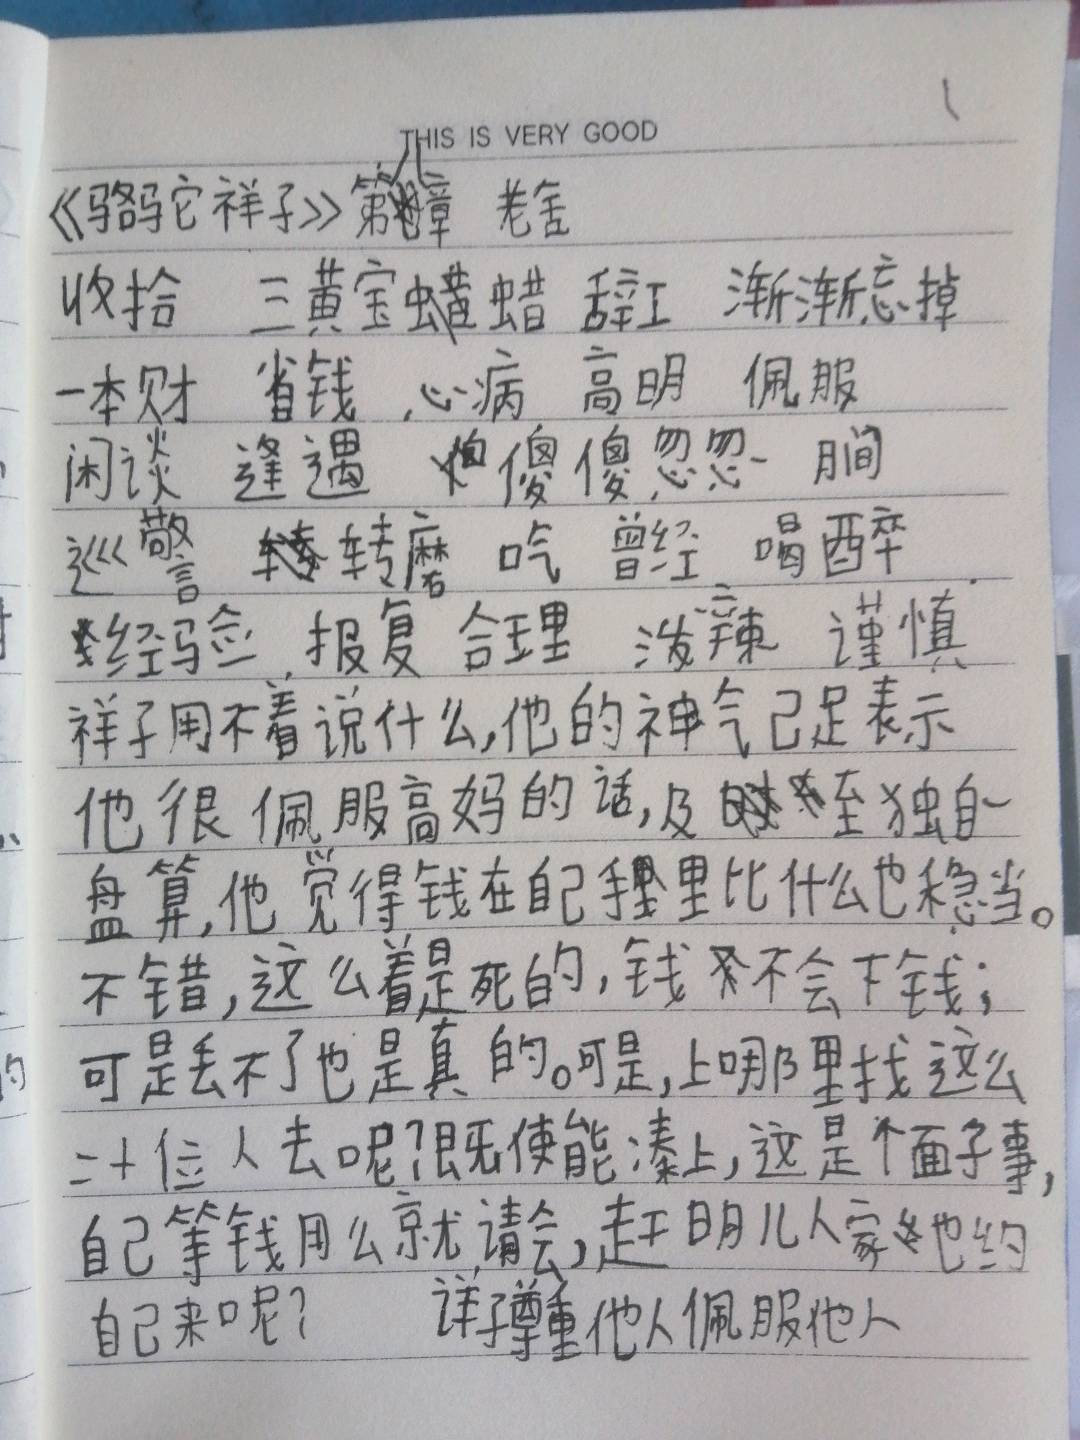 THIS IS VERY GOOD
《骆驼祥子》第八章 老舍
收拾 三黄宝蜡 辞工 渐渐忘掉
一本财 省钱 心病 高明 佩服
闲谈 逢遇 傻傻忽忽
巡警 转磨 吃 曾经 喝醉
经验 报复 合理 泼辣 谨慎
祥子用不着说什么,他的神气己足表示
他很佩服高妈的话,及至独自一
盘算,他觉得钱在自己手里比什么也稳当。
不错,这么着是死的,钱不会下钱;
可是丢不了也是真的。可是,上哪里找这么
二十位人去呢?既使能凑上,这是个面子事,
自己等钱用么就请会,赶明儿人家也约
自己来呢?
详子尊重他人佩服他人